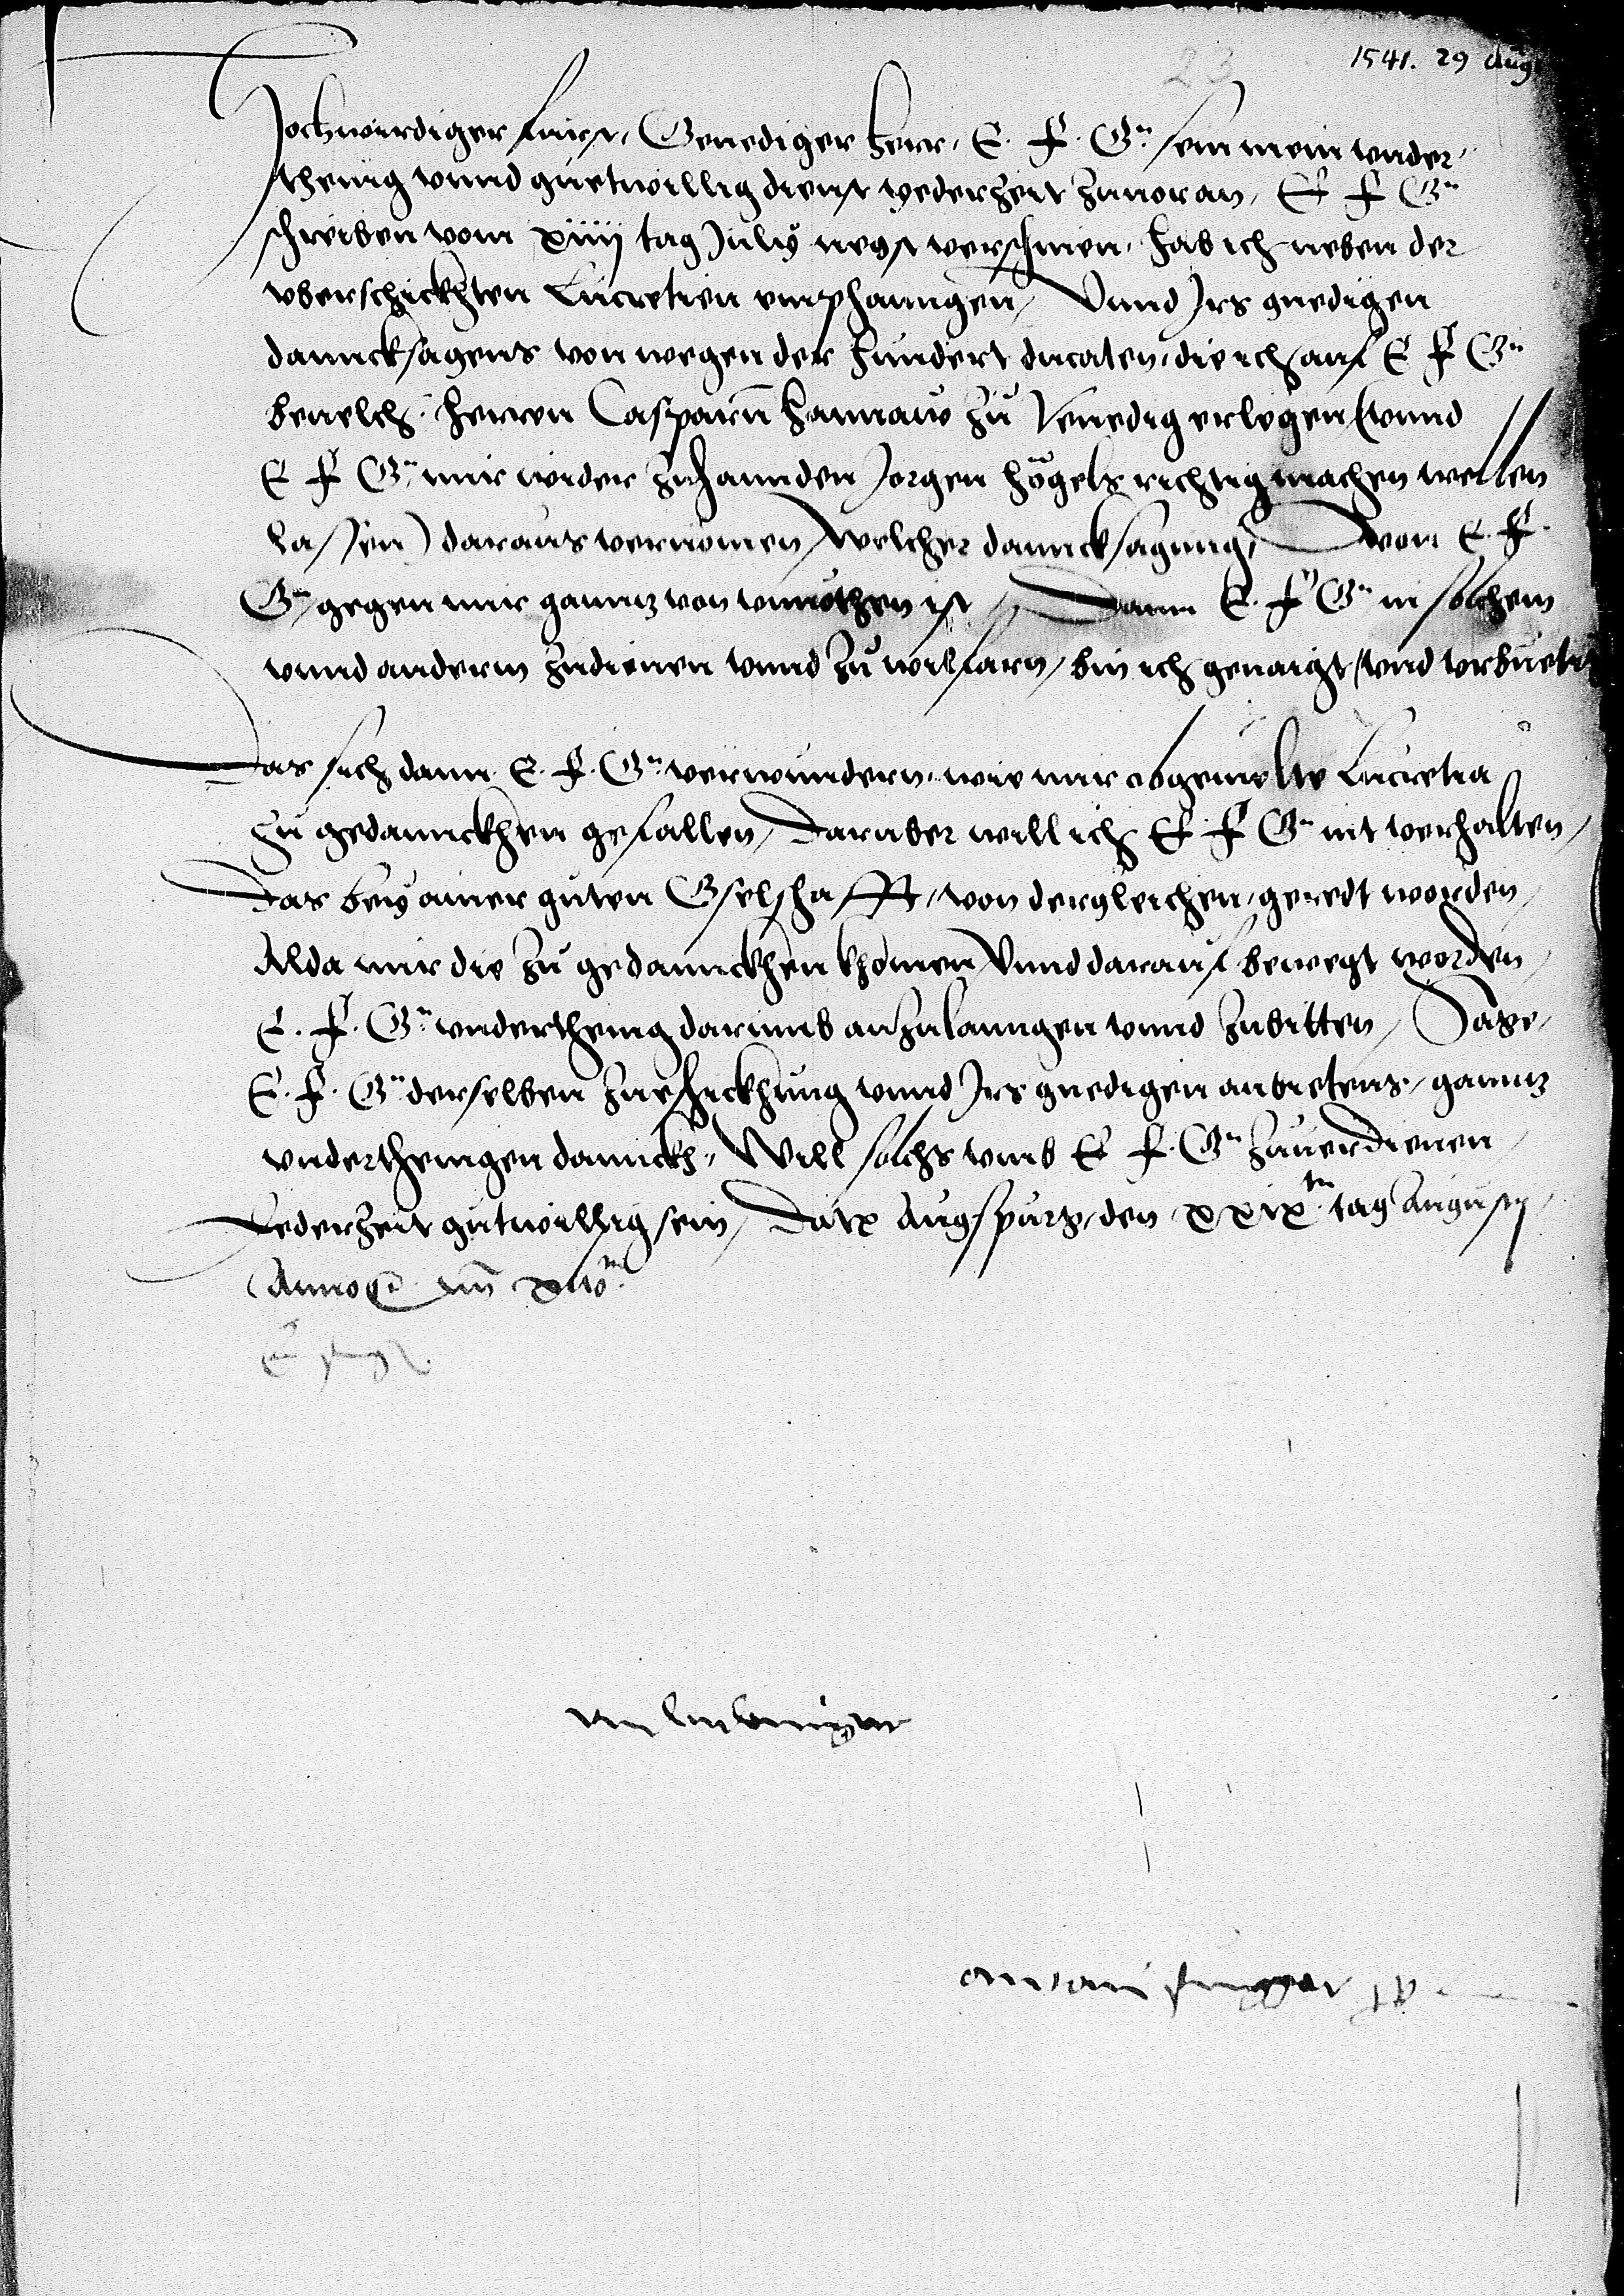 1541. 29 Aug
23
Hochwirdiger Furst, Genediger Herr, E. F. Gn. sein mein vnder-
thenig vnnd guetwillig dienst yederzeit zuuoran, E F Gn
schreiben vom xiiij tag July negst verschinen, hab ich neben der
vberschickhten Lucretien empfanngen, Vnnd Irs gnedigen
dannckhsagens von wegen der hundert ducaten, die ich auf E F Gn
beuelch, herren Casparn Hannaw zu Venedig erlegen (vnnd
E F Gn mir wider zuhannden Jorgen Högels richtig machen wellen
lassen) daraus vernomen, welcher dannckhsagung, von E. F.
Gn, gegen mir gannz von vnnöthen ist, Dann E. F Gn in solchem
vnnd anderm zudienen vnnd zu wilfarn, bin ich genaigt, vnd vrbuetig
Das sich dann E. F. Gn. verwundern, wie mir obgemelte Lucretia
zu gedannckhen gefallen, Daruber will ich E. F Gn nit verhalten,
Das bey ainer guten Gselschafft, von dergleichen, geredt worden,
Alda mir die zu gedannckhen khomen, Vnnd darauf bewegt worden,
E. F. Gn. vnderthenig darumb anzulanngen vnnd zubitten, Sage,
E. F. Gn derselben zueschickhung vnnd Irs gnedigen anbietens, gannz
vnderthenigen dannckh, Will solchs vmb E F. Gn zuuerdienen,
Yederzeit gutwillig sein, Datum Augspurg, den xxix.tn tag Augusti,
Anno
E
Fugger